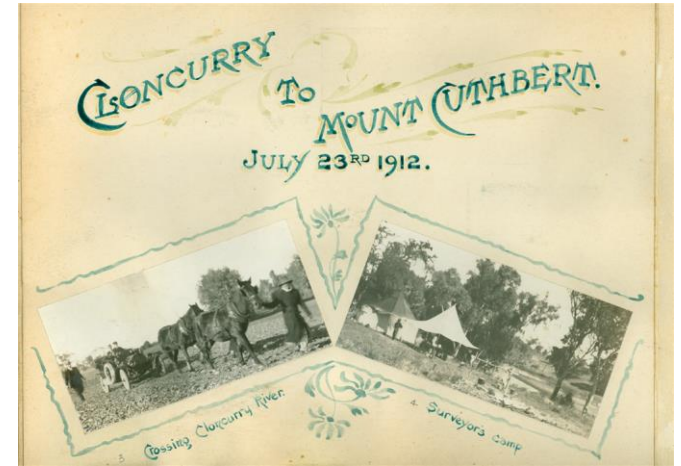 CLONCURRY
TO
MOUNT CUTHBERT.
JULY 23RD 1912.
Crossing Cloncurry River.
3
4. Surveyor's Camp